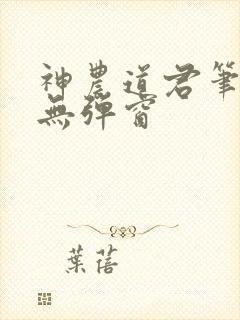 神農道君筆
無彈窗
葉蓓